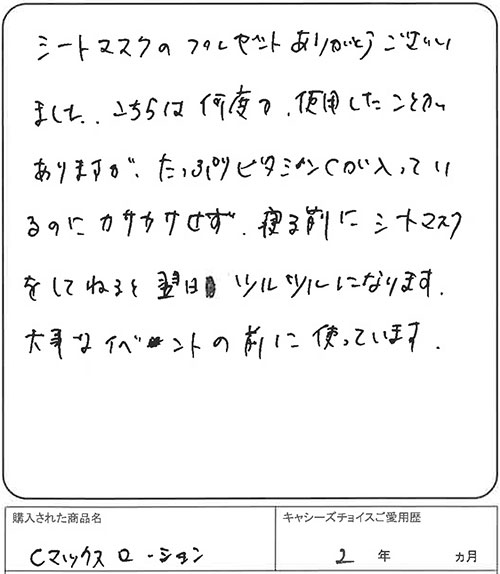 シートマスクのプレゼントありがとうござい
ました。こちらは何度か、使用したことが
ありますが、たっぷりビタミンCが入ってい
るのにカサカサせず、寝る前にシートマスク
をしてねると翌日ツルツルになります。
大事なイベントの前に使っています。
購入された商品名
キャシーズチョイスご愛用歴
Cマックスローション
2 年 ヵ月